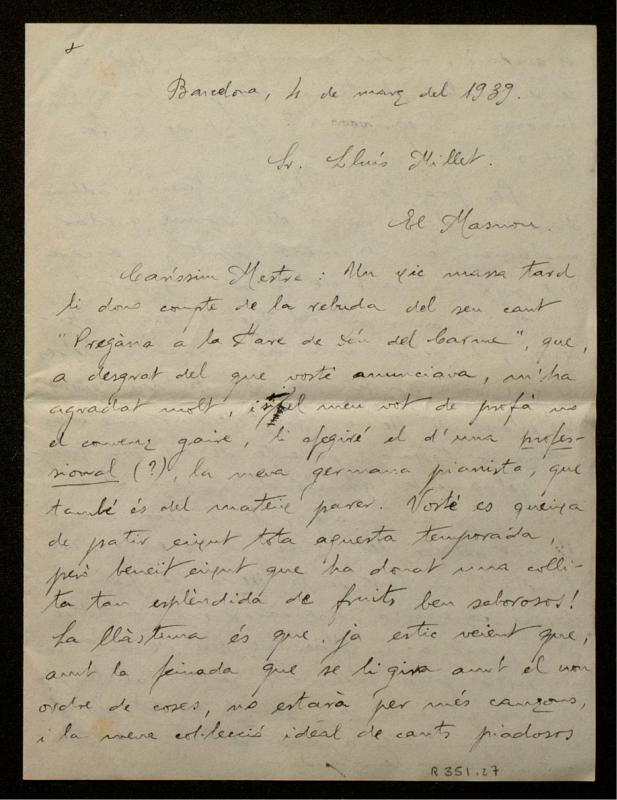 Barcelona, 4 de març del 1939.
Sr. Lluís Millet.
El Masnou.
Caríssim Mestre: Un xic massa tard
li dono compte de la rebuda del seu cant
"Pregària a la Mare de Déu del Carme", que,
a desgrat del que vostè anunciava, m'ha
agradat molt, i si el meu vot de profà no
el convenç gaire, li afegiré el d'una profes-
sional (?), la meva germana pianista, que
també és del mateix parer. Vostè es queixa
de patir eixut tota aquesta temporada,
però beneit eixut que ha donat una colli-
ta tan esplèndida de fruits ben saborosos!
La llàstima és que ja estic veient que,
amb la feinada que se li gira amb el nou
ordre de coses, no estarà per més cançons,
i la meva col·lecció ideal de cants piadosos
R 351.27